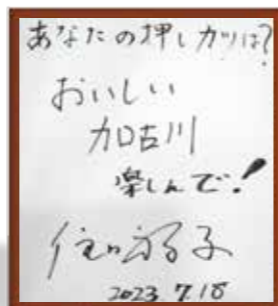 あなたの押しカツは?
おいしい
加古川
楽しんで!
2023.7.18